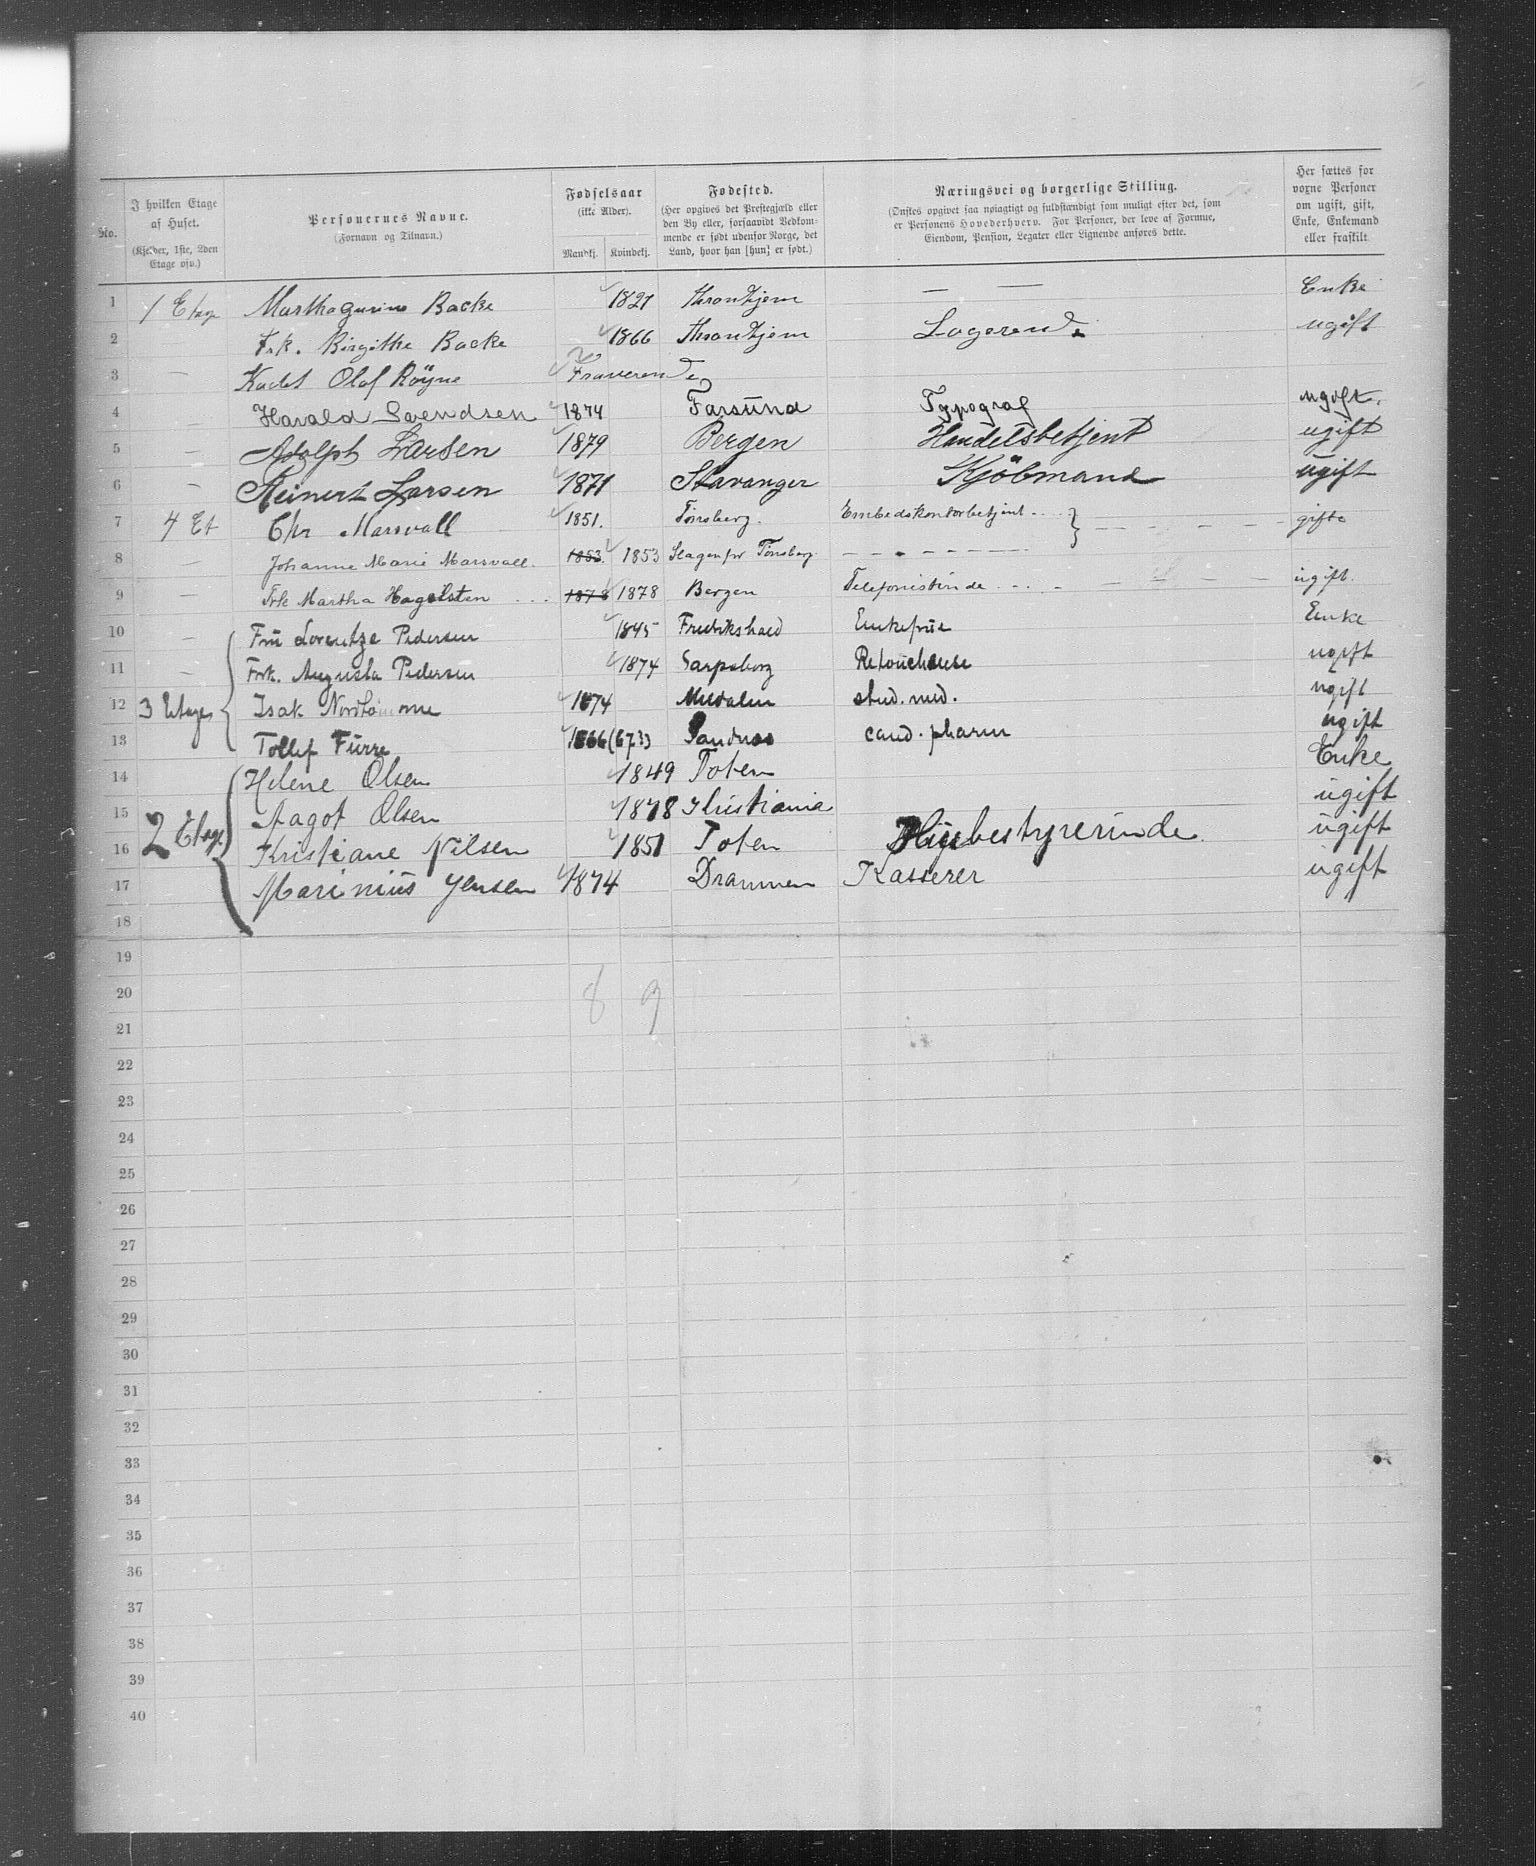 No.
I hvilken Etage af Huset. (Kjelder, 1ste, 2den Etage osv.)
Personernes Navne. (Fornavn og Tilnavn.)
Fødselsaar (ikke Alder). Mandkj. Kvindekj.
Fødested. (Her opgives det Prestegjæld eller den By eller, forsaavidt Vedkommende er født udenfor Norge, det Land, hvor han [hun] er født.)
Næringsvei og borgerlige Stilling. (Ønskes opgivet saa nøiagtigt og fuldstændigt som muligt efter det, som er Personens Hovederhverv. For Personer, der leve af Formue, Eiendom, Pension, Legater eller Lignende anføres dette.
Her sættes for voxne Personer om ugift, gift, Enke, Enkemand eller fraskilt
1 1 Etage Marthagurine Backe 1827 Thronhjem — — Enke
2 Frk. Birgithe Backe 1866 Thronhjem Logerende ugift
3 — Kadet Olaf Röyne Fraverende
4 — Harald Svendsen 1874 Farsund Typograf ugift.
5 — Adolph Larsen 1879 Bergen Handelsbetjent ugift
6 — Reinert Larsen 1871 Stavanger Kjöbmand ugift
7 4 Et Chr Marsvall 1851. Tönsberg. Embedskontorbetjent gifte
8 — Johanne Marie Marsvall. 1853. 1853 Slagen pr Tönsberg. — — — — —
9 — Frk Martha Hagelsten 1878 1878 Bergen Telefonistinde ugift.
10 — Frü Lorentze Pedersen 1845 Fredrikshald Enkefrüe Enke
11 — Frk. Augusta Pedersen 1874 Sarpsborg Retoucheuse ugift
12 3 Etage Isak 1874 stud. med. ugift
13 Tollef Fürre 1866 (6733) Sandnæs cand. pharm ugift
14 Helene Olsen 1849 Toten Enke
15 Aagot Olsen 1878 Kristiania ugift
16 2 Etage Kristiane Nilsen 1851 Toten Husbestyrerinde ugift
17 Marinius Jensen 1874 Drammen Kasserer ugift
18
19
20 8 9
21
22
23
24
25
26
27
28
29
30
31
32
33
34
35
36
37
38
39
40